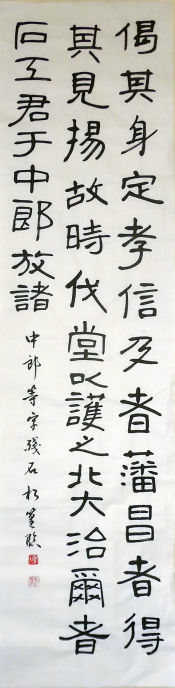 偈其身定孝信及者藩昌者得
其見揚故時伐堂以護之北大治爾者
石工君于中郎放諸
中郎等字殘石